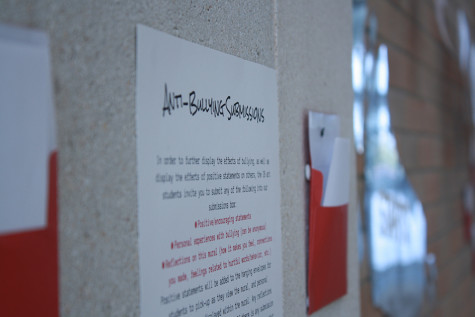 Anti-Bullying Submissions
In order to further display the effects of bullying, as well as
display the effects of positive statements on others, the IB art
students invite you to submit any of the following into our
submissions box:
*Positive/encouraging statements
*Personal experiences with bullying (can be anonymous)
*Reflections on this mural (how it makes you feel, connections
you made, feelings related to hurtful words/behavior, etc.)
Positive statements will be added to the hanging envelopes for
students to pick-up as they view the mural, and personal
displayed within the mural. Any reflections